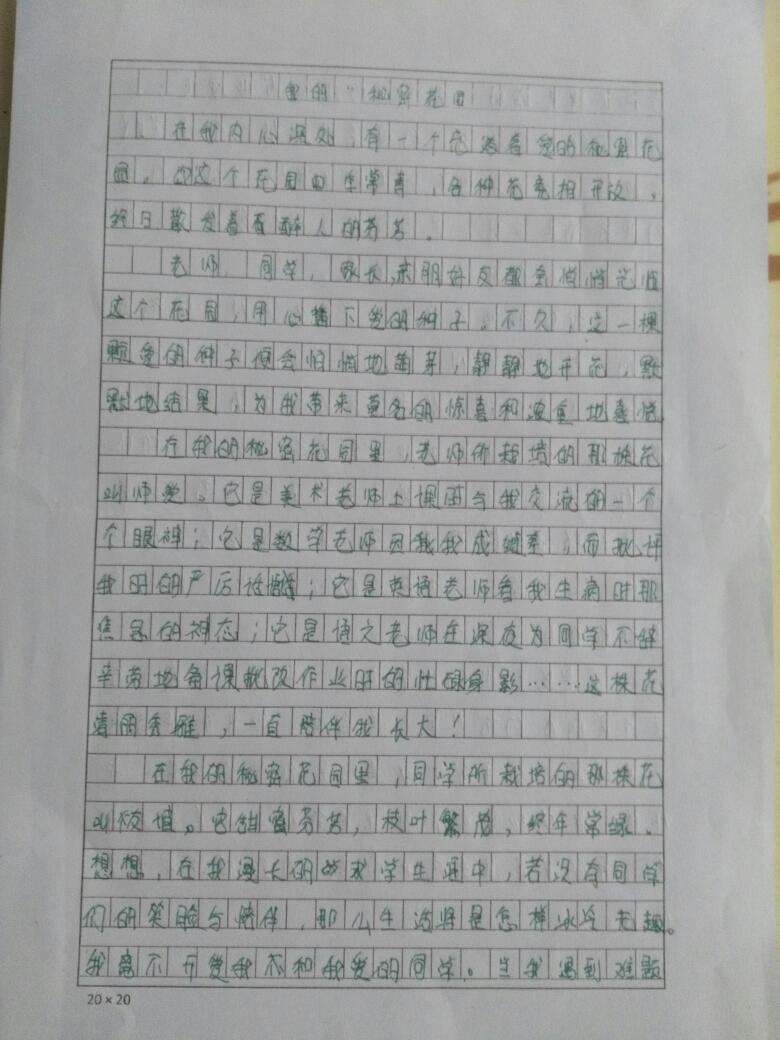 爱的“秘密花园
在我内心深处，有一个充满着爱的秘密花
园。这个花园四季常青，各种花竞相开放，
终日散发着香醉人的芬芳。
老师、同学、家长、亲朋好友都会悄悄光临
这个花园，用心播下爱的种子，不久，这一棵
颗爱的种子便会悄悄地萌芽，静静地开花，默
默地结果，为我带来莫名的惊喜和浓重地喜悦
在我的秘密花园里，老师所栽培的那株花
叫师爱。它是美术老师上课时与我交流的一个
个眼神；它是数学老师因我成绩差，而批评
我时的严厉话语；它是英语老师看我生病时那
焦急的神态；它是语文老师在深夜为同学不辞
辛劳地备课批改作业时的忙碌身影……这株花
清丽秀雅，一直陪伴我长大！
在我的秘密花园里，同学所栽培的那株花
叫友谊。它甜蜜芬芳，枝叶繁茂，终年常绿。
想想，在我漫长的求学生涯中，若没有同学
们的笑脸与陪伴，那么生活将是怎样冰冷无趣。
我离不开爱我和我爱的同学。当我遇到难题
20×20